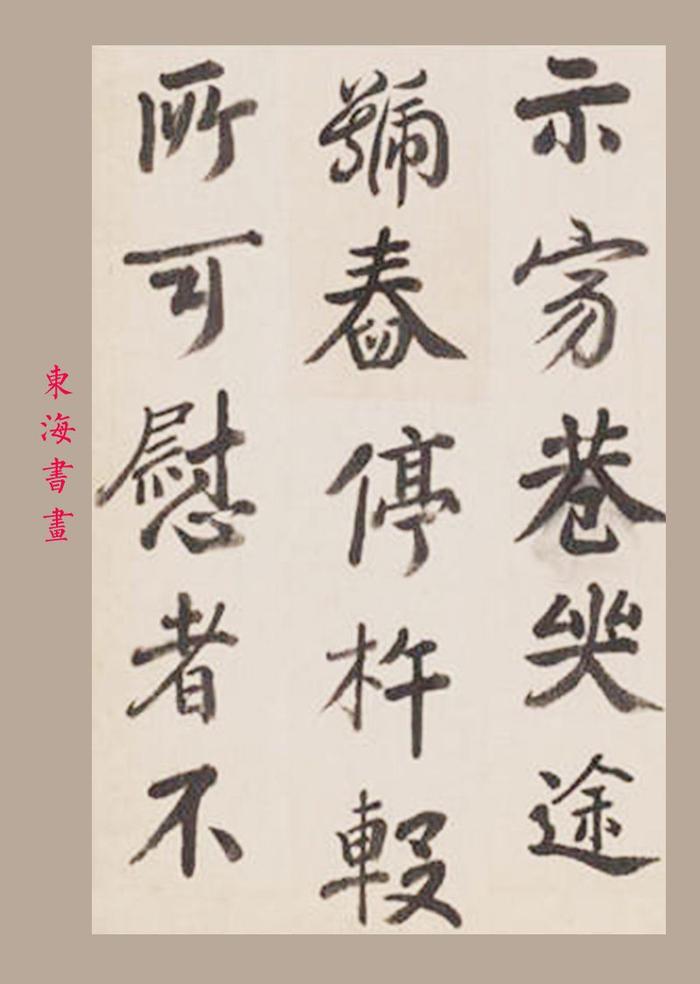 示巷哭途
號舂停杵輟
所可慰者不
東海書畫